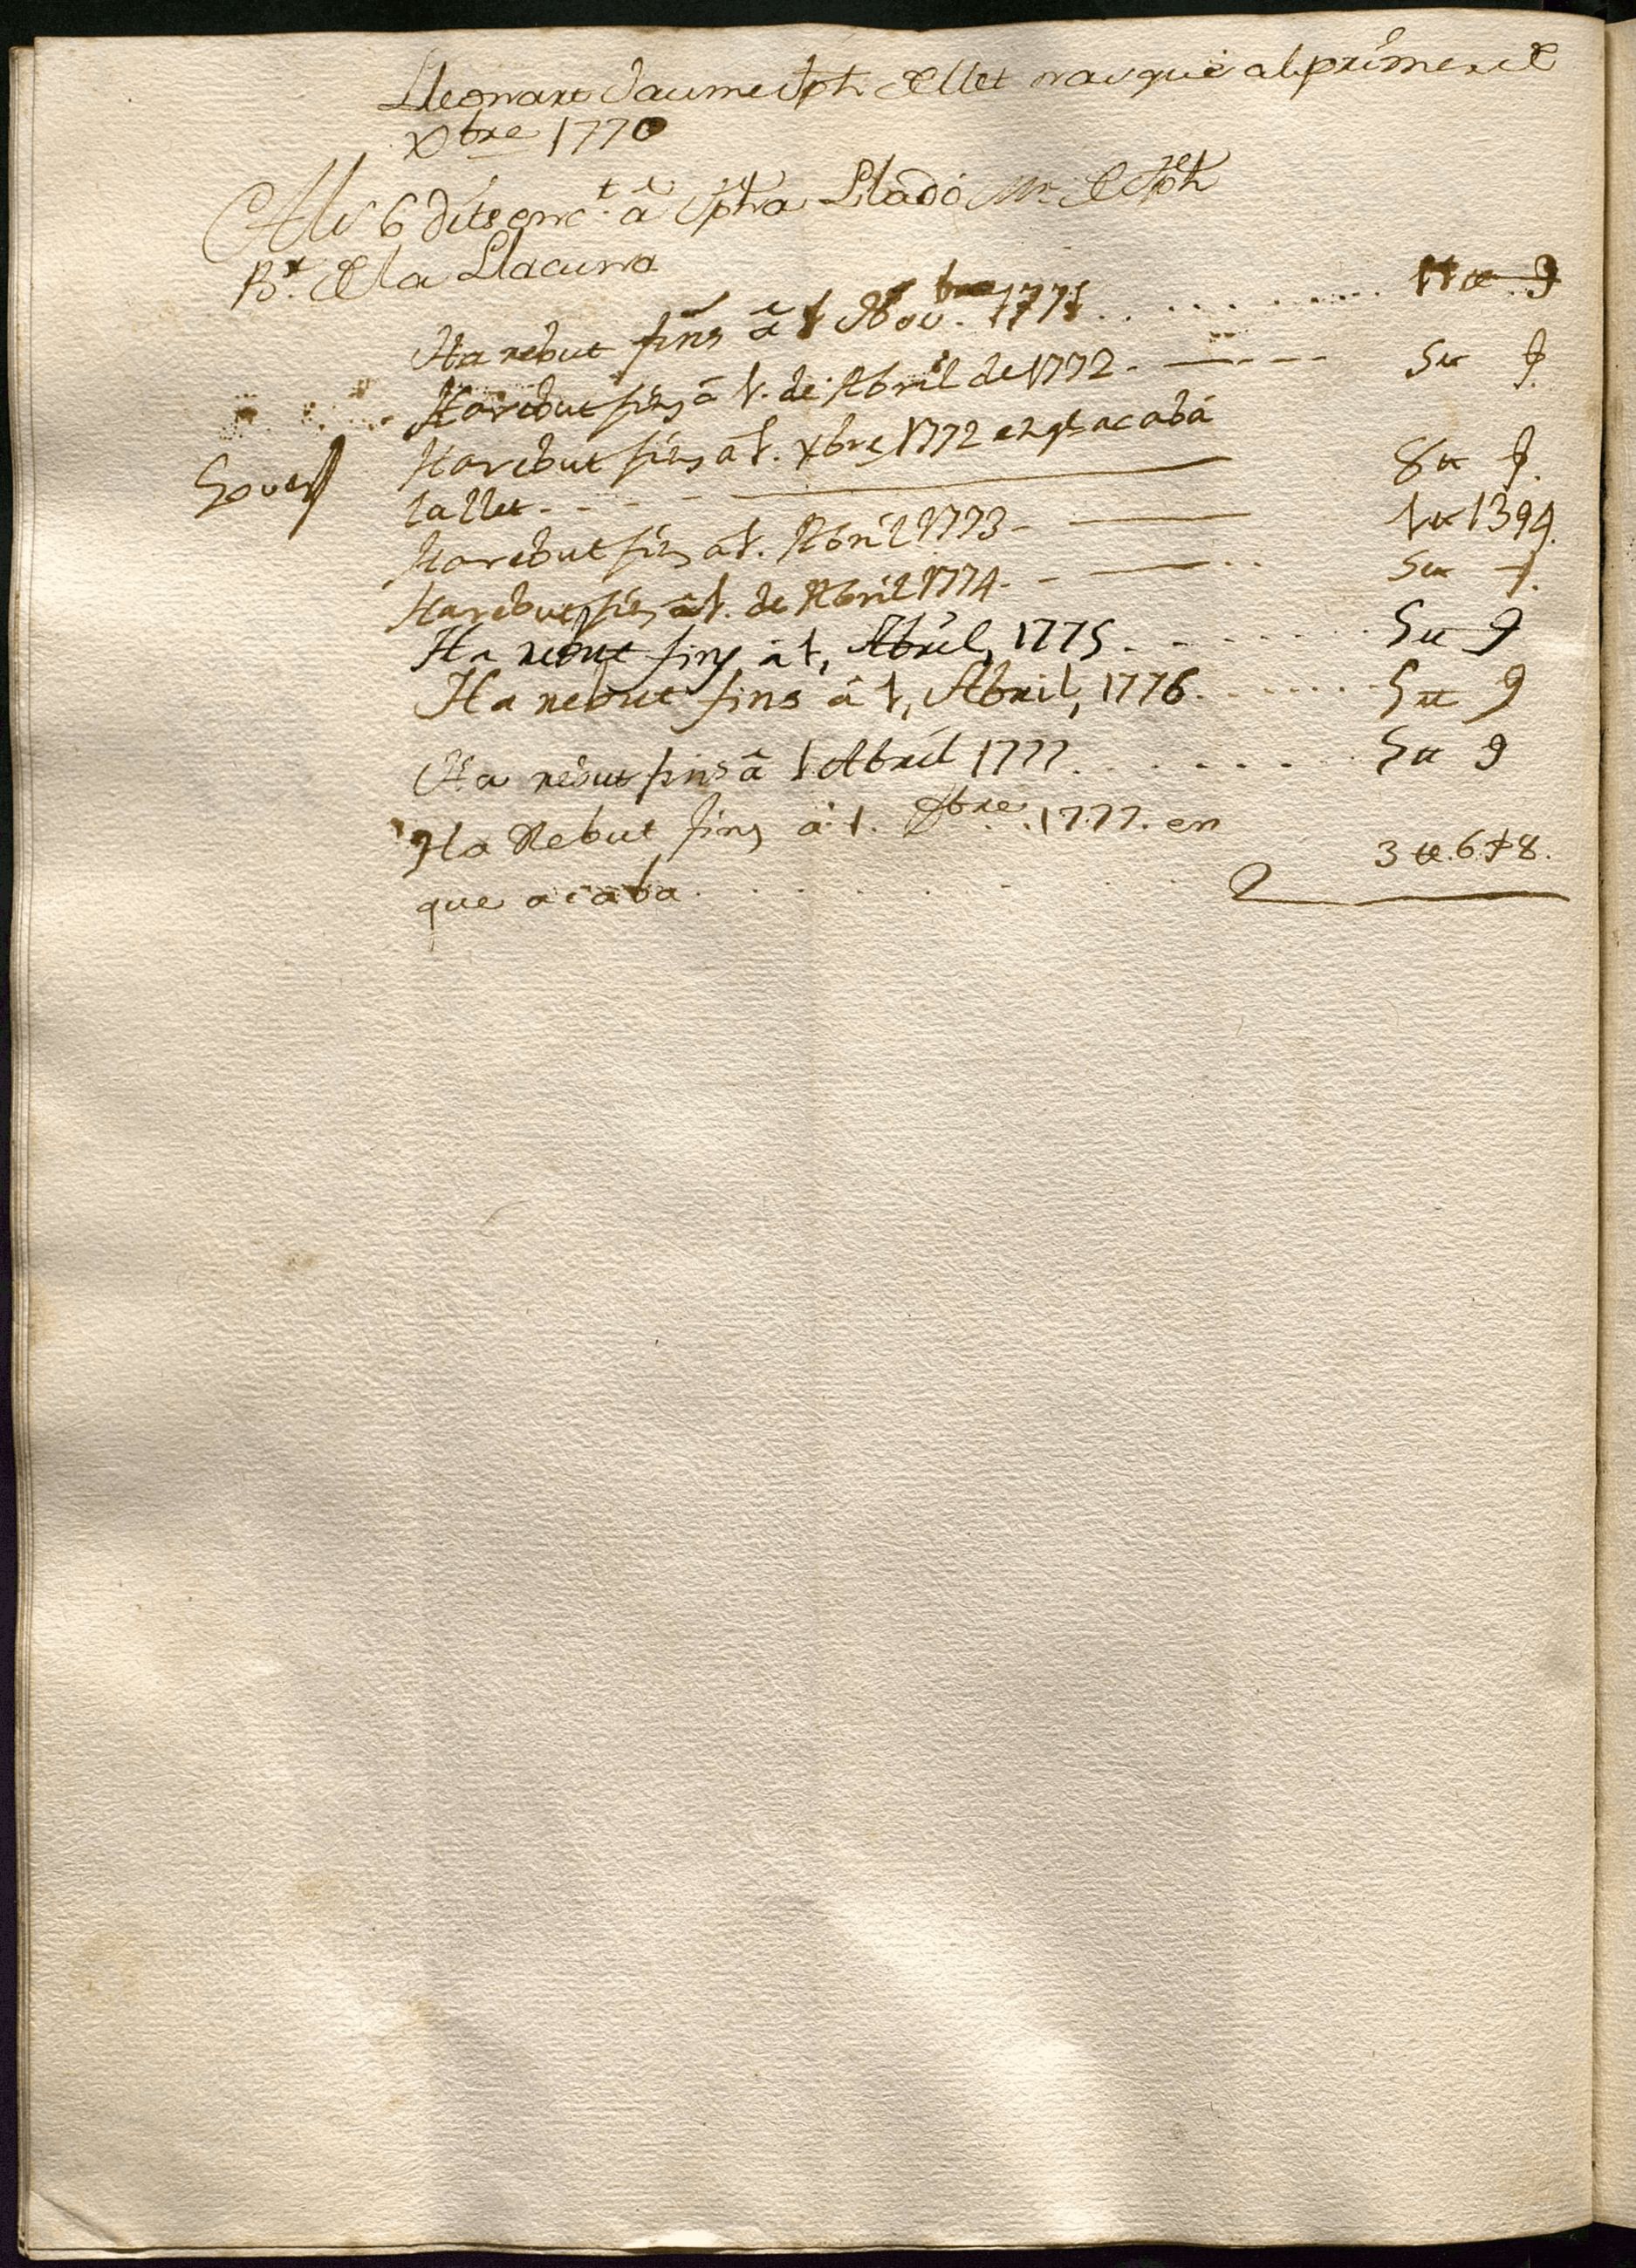 Lleonart Jaume Jph de llet nasqué al primer de
Xbre 1770
Als 6 dits enct â Jpha Lladó Mr de Jph
Bt de la Llacuna
Ha rebut fins â 1 Nov.bre 1771 . . . . . . . . 11 ₶ 9
Ha rebut fins â 1. de Abril de 1772 . — . - — 5 ₶ 9.
Ha rebut fins a 1. Xbre 1772 en qe. acabá
la llet . - - - — 8 ₶ 9.
Ha rebut fins a 1. Abril 1773 - — 1 ₶ 13 9 4.
Ha rebut fins â 1. de Abril 1774 - - — . . 5 ₶ 9.
Ha rebut fins â 1, Abril, 1775 . . . . . . . . 5 ₶ 9
Ha rebut fins â 1, Abril, 1776 . . . . . . . 5 ₶ 9
Ha rebut fins â 1 Abril 1777 . . . . . . . 5 ₶ 9
Ha Rebut fins â 1. Xbre 1777. en
que acaba . . . . . . . 3 ₶ 6 9 8.